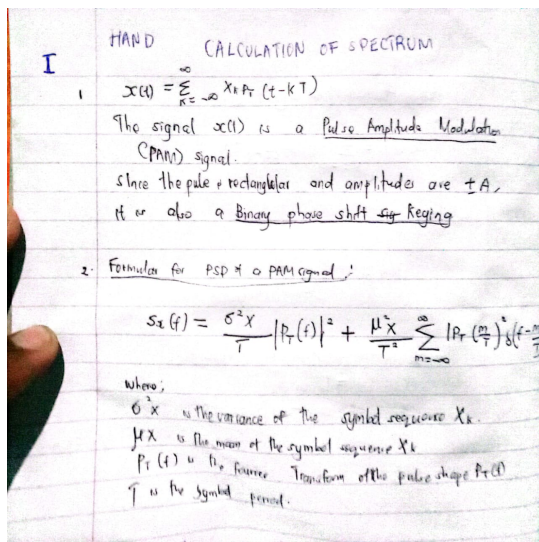 HAND CALCULATION OF SPECTRUM
I
1 x(t) = ∞ Σ K=-∞ XK PT (t-KT)
The signal x(t) is a Pulse Amplitude Modulation
(PAM) signal.
Since the pulse is rectangular and amplitudes are ±A,
it is also a Binary phase shift Keying
2. Formular for PSD of a PAM signal:
Sx(f) = σ²X/T |PT(f)|² + μ²X/T² ∞ Σ m=-∞ |PT(m/T)|² δ(f-m/T
where;
σ²X is the variance of the symbol sequence XK.
μX is the mean of the symbol sequence XK
PT(f) is the Fourier Transform of the pulse shape PT(t)
T is the symbol period.